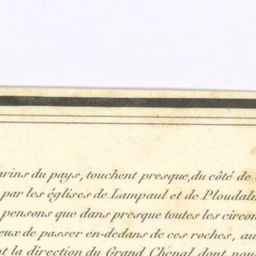 arins du pays, touchent presque, du côté de
par les églises de Lampaul et de Ploudal
pensons que dans presque toutes les circon
eux de passer en-dedans de ces roches, au
t la direction du Grand Chénal dont nou